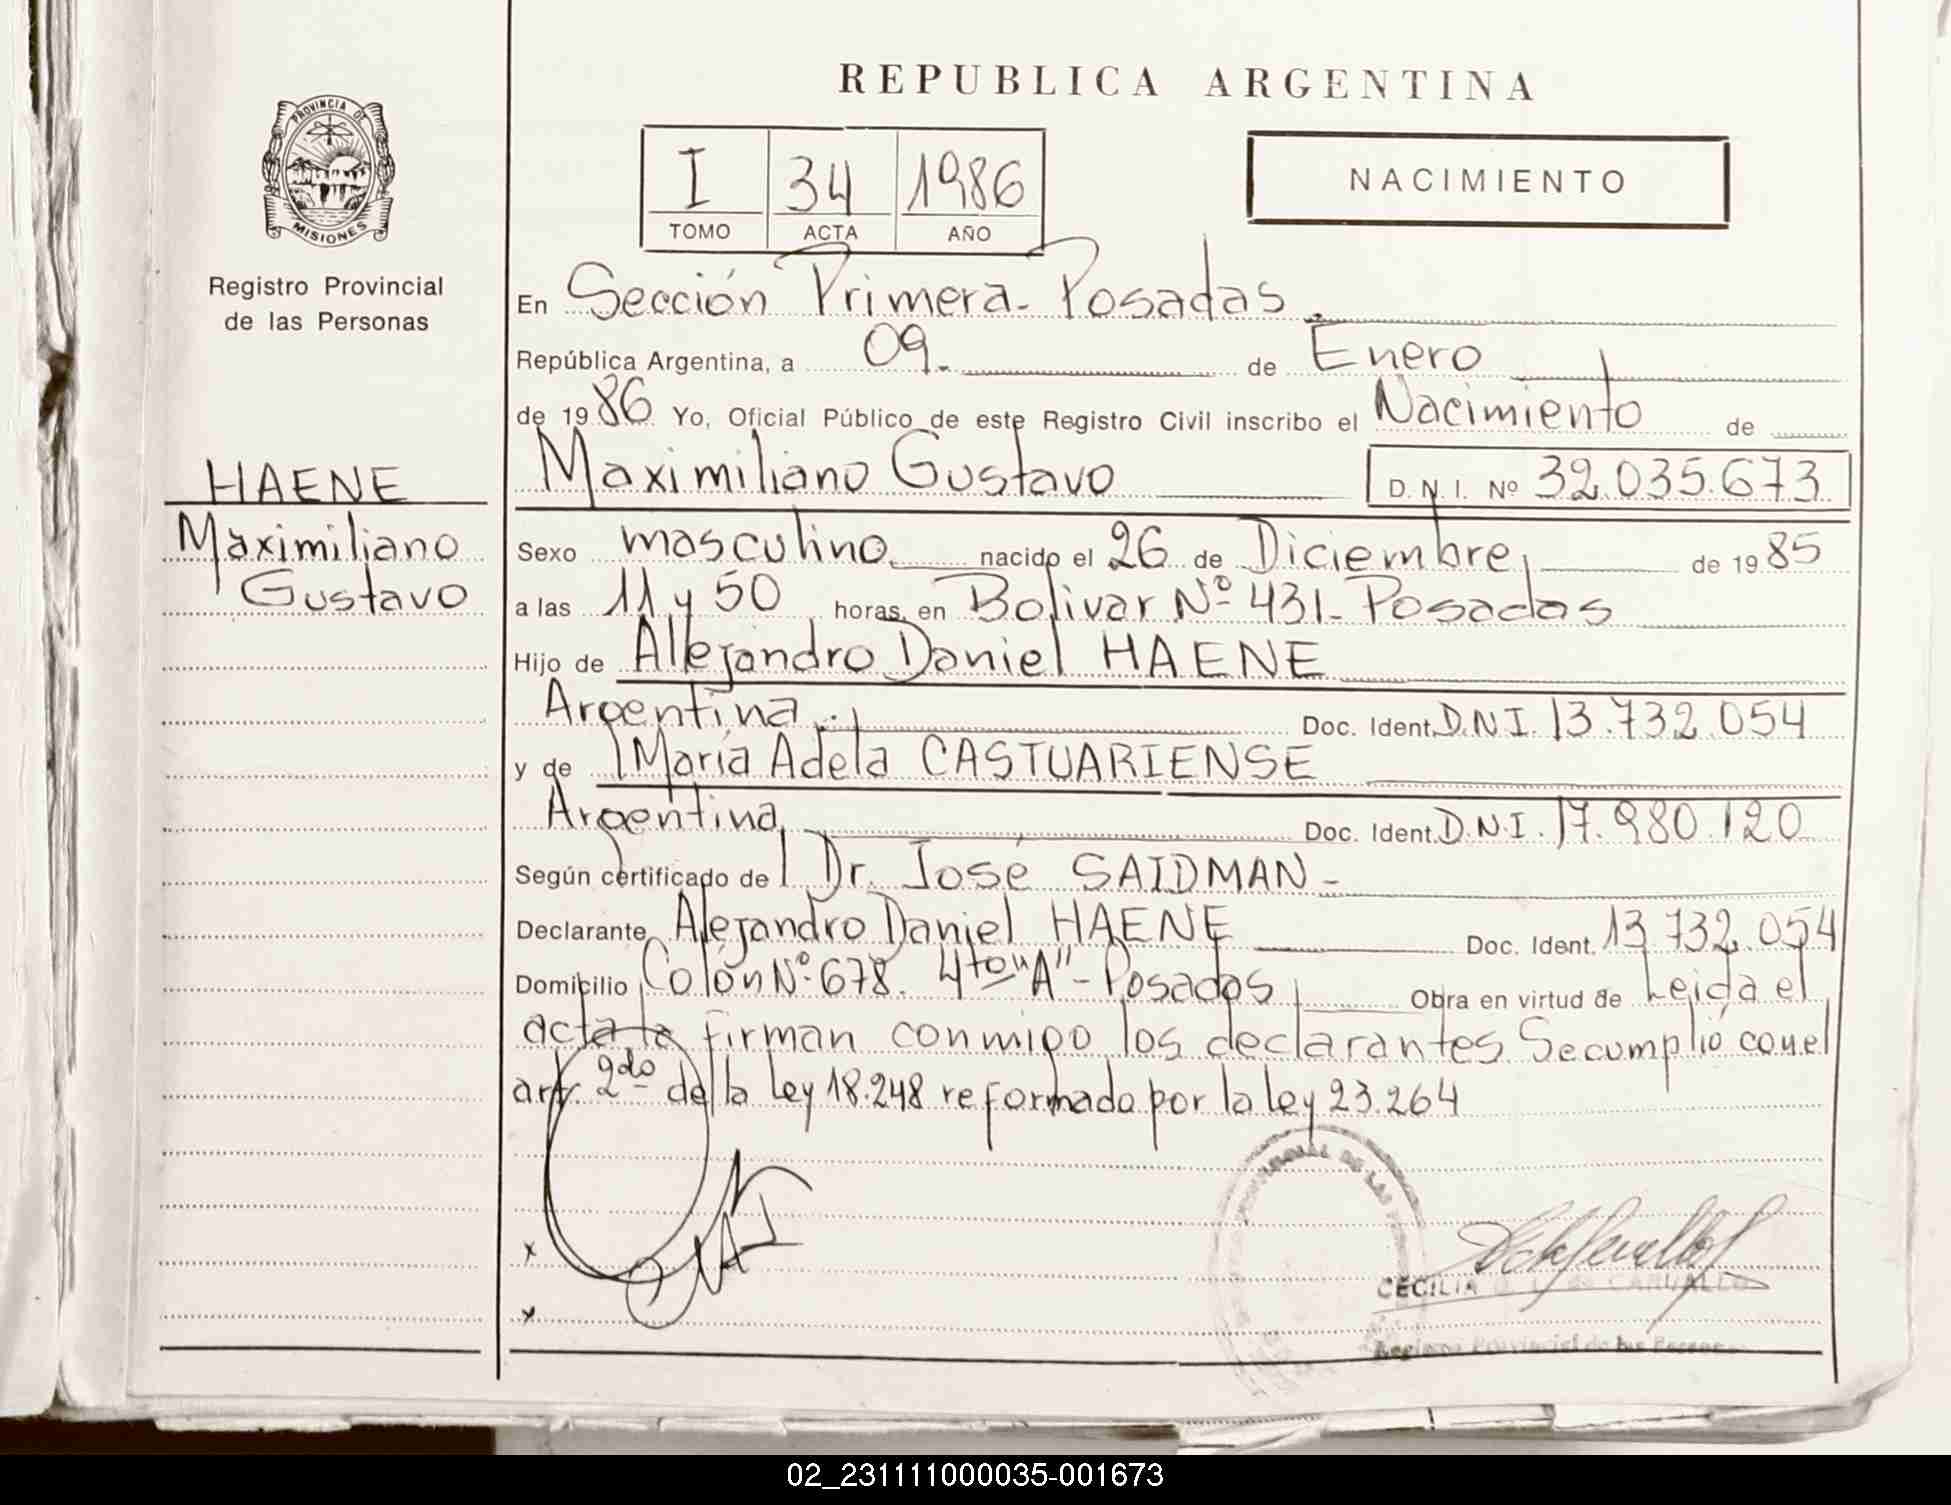 REPUBLICA ARGENTINA
PROVINCIA DE
MISIONES
Registro Provincial
de las Personas
I 34 1986
TOMO ACTA AÑO
NACIMIENTO
En Sección Primera - Posadas.
República Argentina, a 09. de Enero
de 1986 Yo, Oficial Público de este Registro Civil inscribo el Nacimiento de
HAENE
Maximiliano
Gustavo
Maximiliano Gustavo D.N.I. Nº 32.035.673
Sexo masculino nacido el 26 de Diciembre de 1985
a las 11 y 50 horas, en Bolivar Nº 431 - Posadas
Hijo de Allejandro Daniel HAENE
Argentina Doc. Ident. D.N.I. 13.732.054
y de María Adela CASTUARIENSE
Argentina Doc. Ident. D.N.I. 17.980.120
Según certificado del Dr. José SAIDMAN -
Declarante Alejandro Daniel HAENE Doc. Ident. 13.732.054
Domicilio Colón Nº 678. 4to "A" - Posadas Obra en virtud de Leida el
acta la firman conmigo los declarantes Se cumplió con el
art. 2do de la Ley 18.248 reformado por la ley 23.264
x
x
CECILIA
Registro Provincial de las Personas
02_231111000035-001673